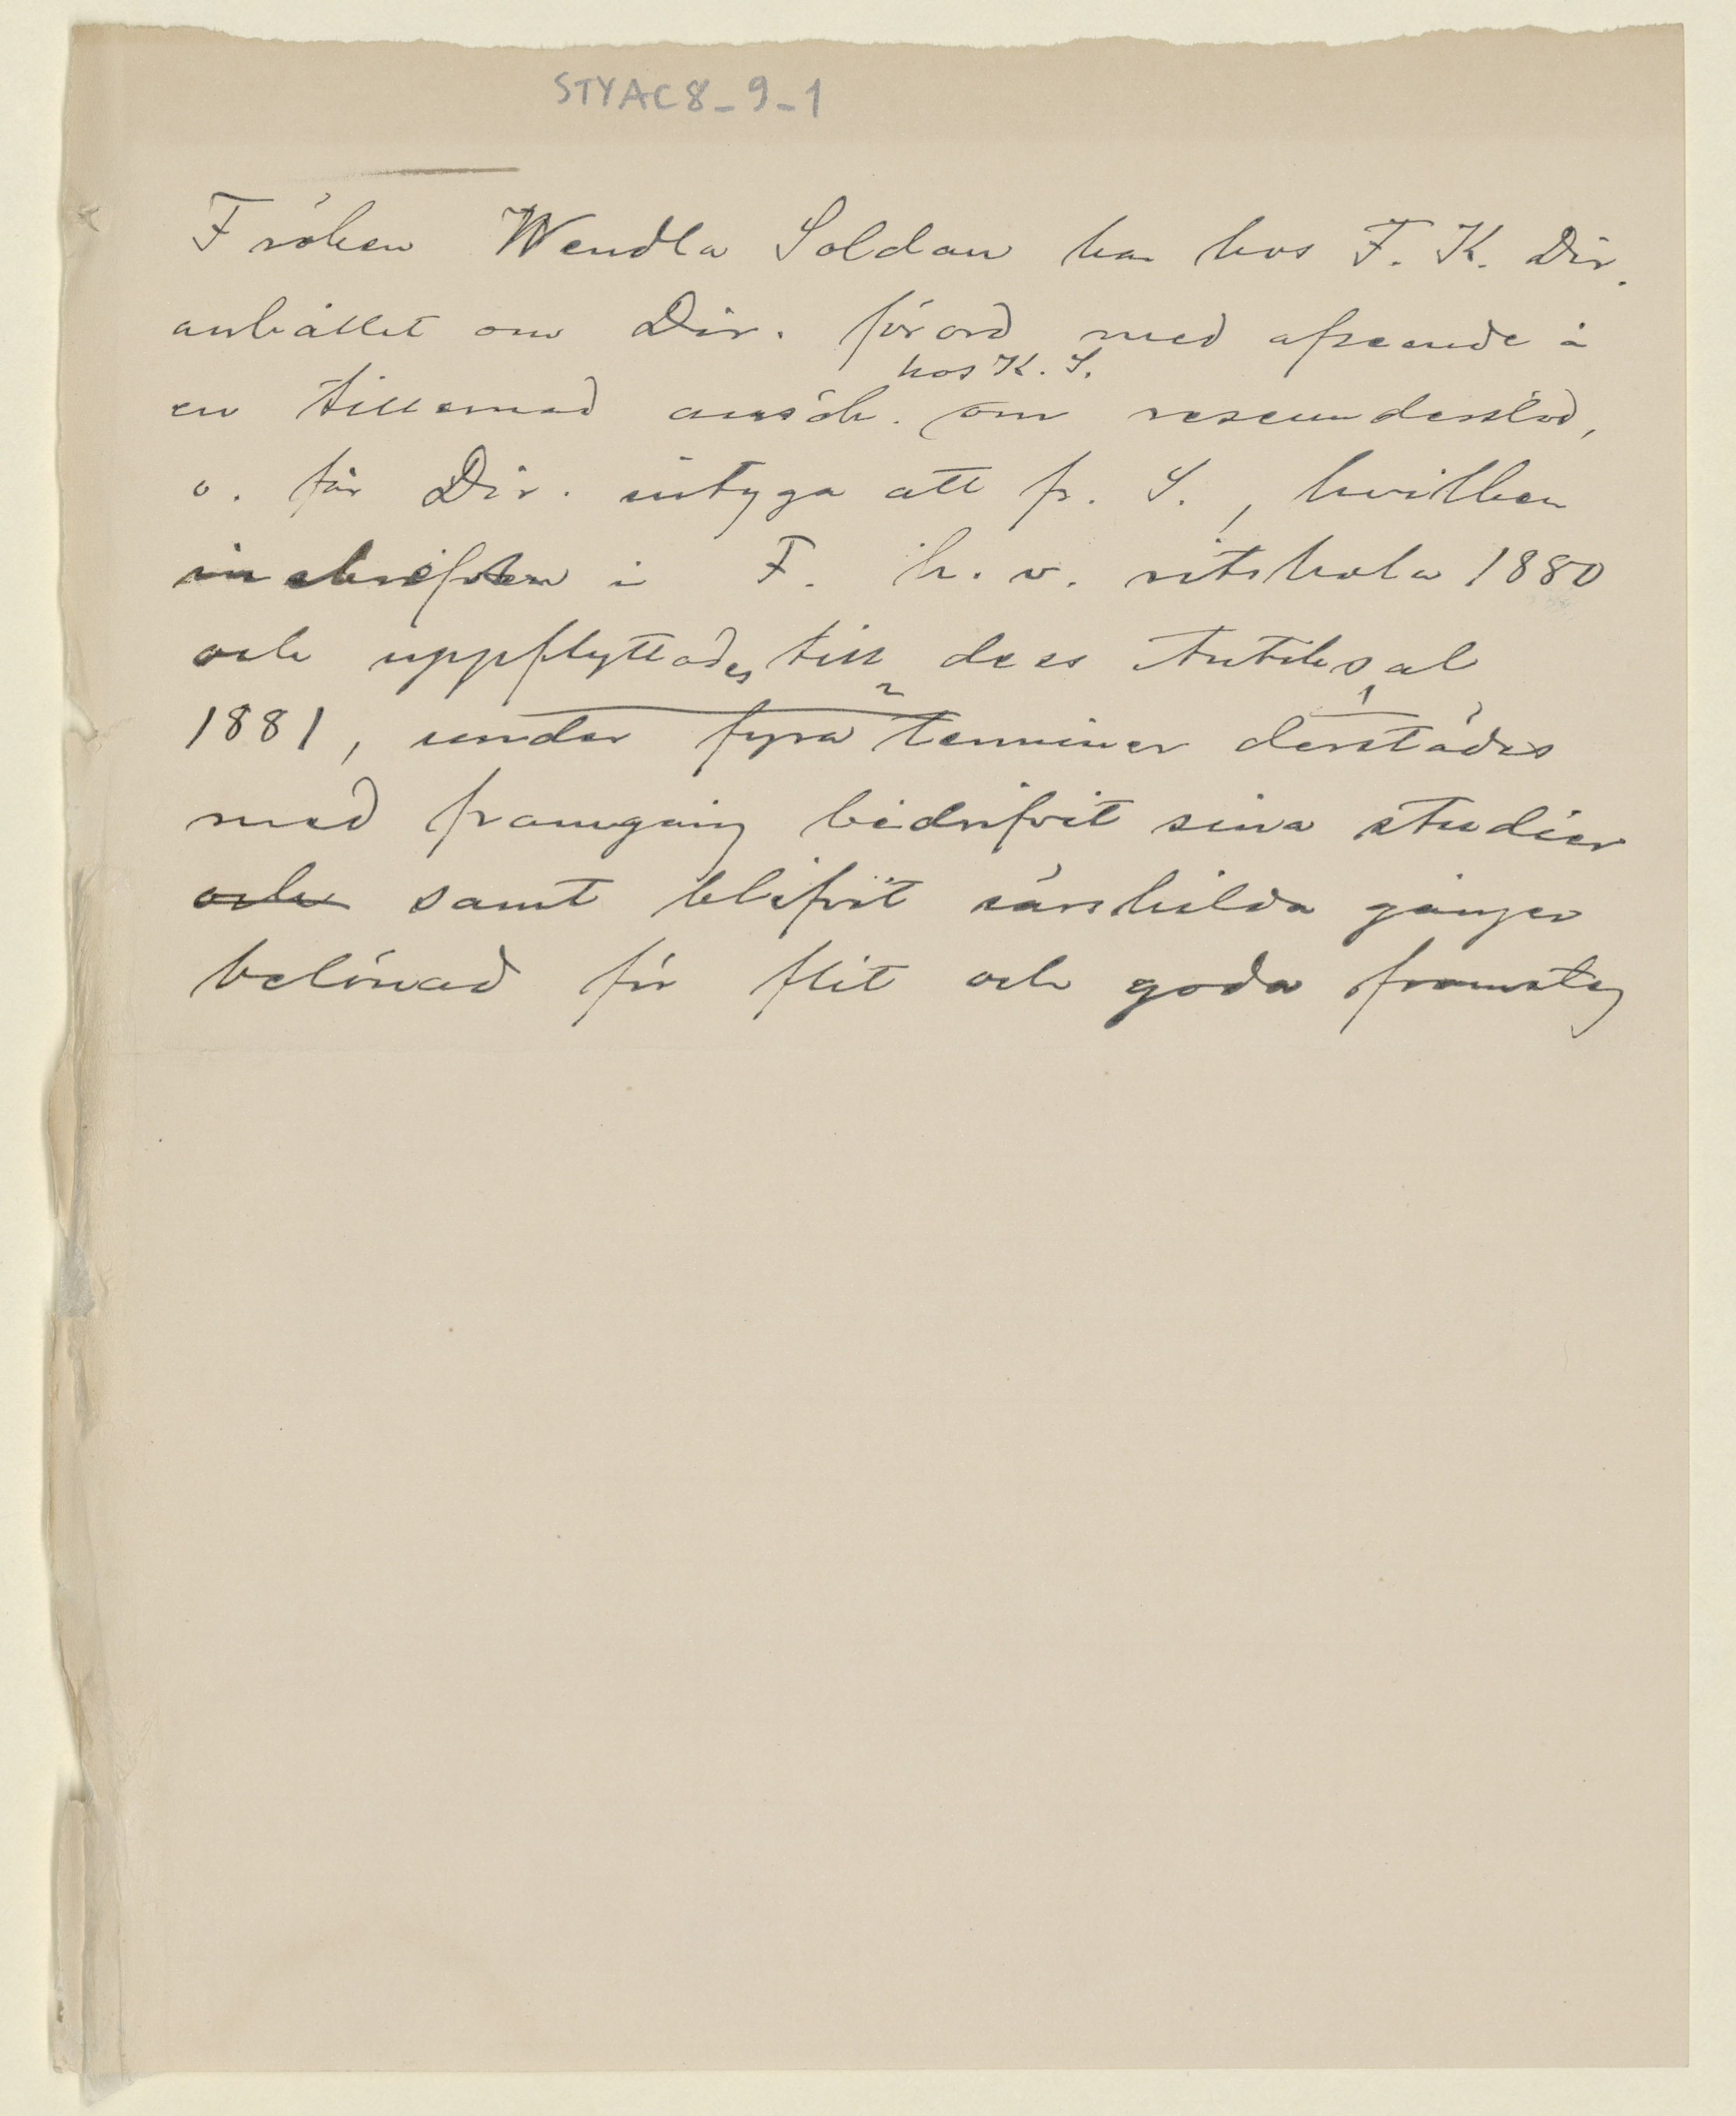 STYAC8_9_1
Fröken Wendla Soldan har hos F. K. Dir.
anhållit om Dir. förord med afseende å
hos K. S.
en tillernad ansök. om reseunderstöd,
o. får Dir. intyga att fr. S., hvilken
inskrefven i F. k. v. ritskola 1880
och uppflyttades till dess Antiksal
2 1
1881, under fyra terminer derstädes
med framgång bedrifvit sina studier
och samt blifvit särskilda gånger
belönad för flit och goda framsteg